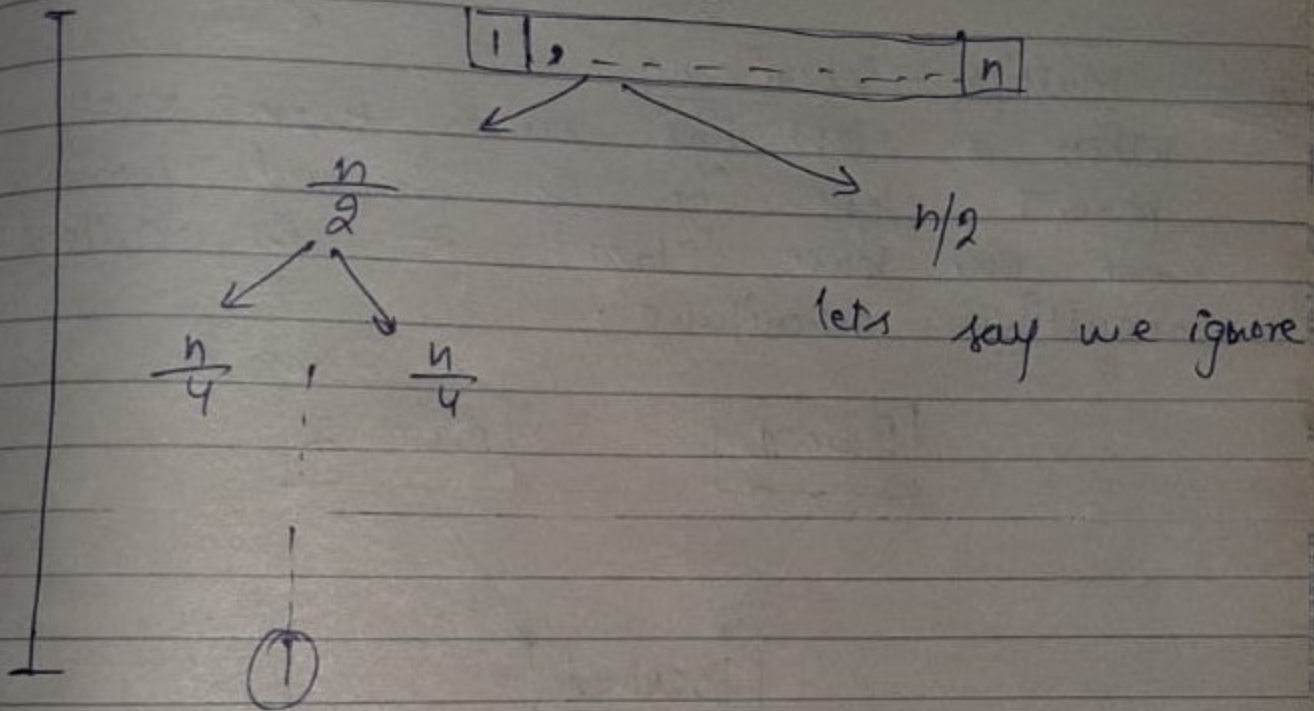 1 , - - - - - - - n
n/2
n/2
lets say we ignore
n/4 , n/4
1